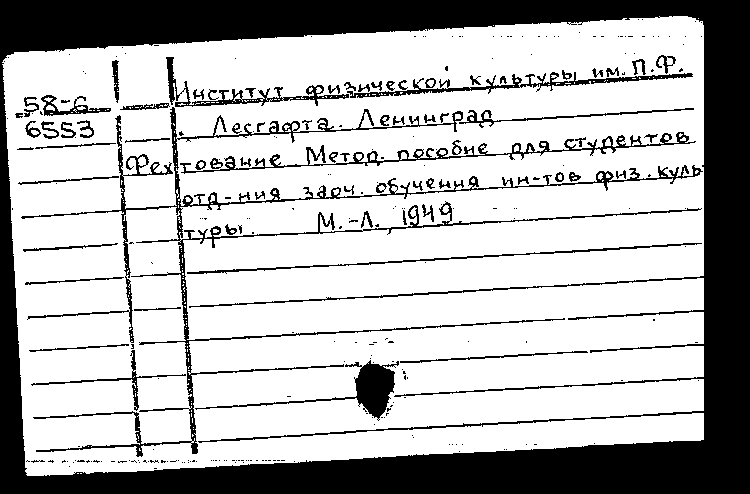 58-6
6553
Институт физической культуры им. П.Ф.
Лесгафта. Ленинград
Фехтование Метод. пособие для студентов
отд-ния заоч. обучения ин-тов физ. куль-
туры. М.-Л., 1949.